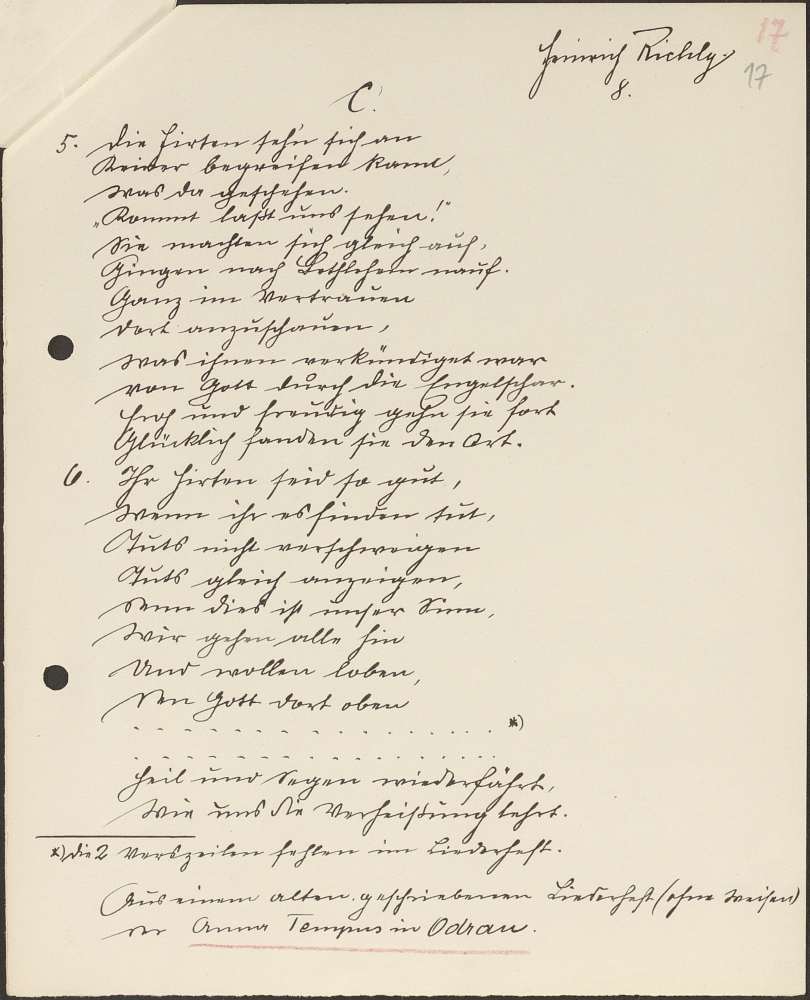 17
Heinrich Richly.
17
8.
C.
5. Die Hirten sehn sich an
Keiner begreifen kann,
Was da geschehen.
"Kommt laßt uns sehen!"
Sie machten sich gleich auf,
Gingen nach Bethlehem nauf.
Ganz im Vertrauen
Dort anzuschauen,
Was ihnen verkündiget war
von Gott durch die Engelschar.
Froh und freudig gehn sie fort
Glücklich fanden sie den Ort.
6. Ihr Hirten seid so gut,
Wenn ihr es finden tut,
Tuts nicht verschweigen
Tuts gleich anzeigen,
Denn dies ist unser Sinn,
Wir gehen alle hin
Und wollen loben,
Den Gott dort oben
. . . . . . . . . . . . . . . . *)
. . . . . . . . . . . . . . . .
Heil und Segen wiederfährt,
Wie uns die Verheißung lehrt.
*) die 2 Verszeilen fehlen im Liederheft.
Aus einem alten geschriebenen Liederheft (ohne Weisen)
der Anna Tempus in Odrau.